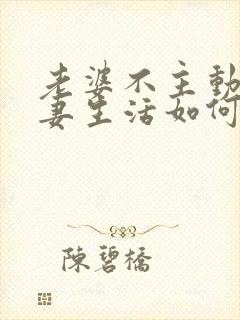 老婆不主動
妻生活如何
陳碧橋